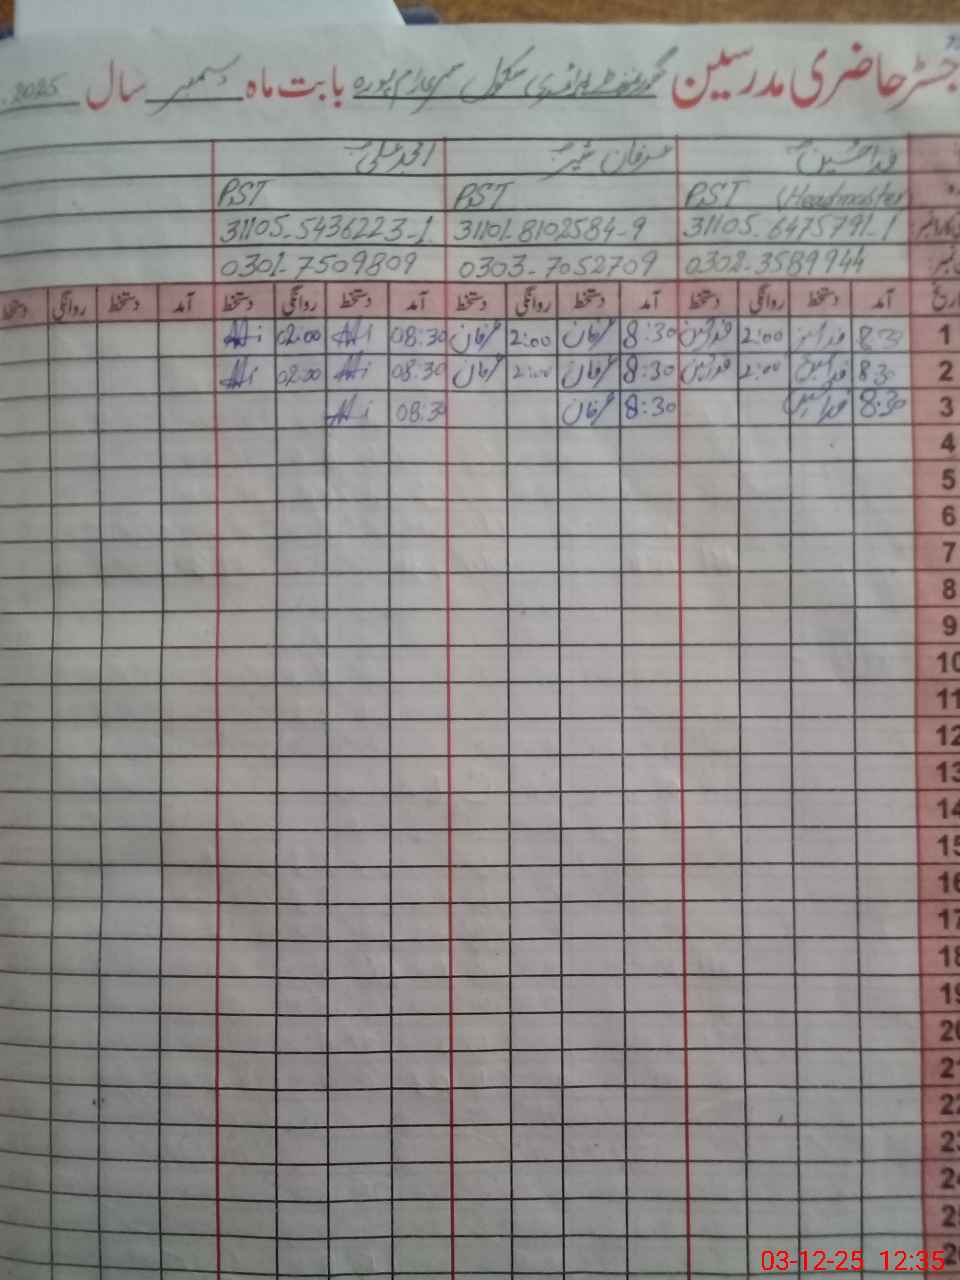 رجسٹر حاضری مدرسین گورنمنٹ پرائمری سکول بابت ماہ دسمبر سال 2025
فدا حسین عرفان امجد علی
PST (Headmaster) PST PST
31105-6475791-1 31101-8102584-9 31105-5436223-1
0302-3589944 0303-7052709 0301-7509809
آمد دستخط روانگی دستخط آمد دستخط روانگی دستخط آمد دستخط روانگی دستخط آمد دستخط روانگی دستخط
1 8:30 فدا حسین 2:00 فدا حسین 8:30 عرفان 2:00 عرفان 08:30 Ali 02:00 Ali
2 8:30 فدا حسین 2:00 فدا حسین 8:30 عرفان 2:00 عرفان 08:30 Ali 02:00 Ali
3 8:30 فدا حسین 8:30 عرفان 08:30 Ali
4
5
6
7
8
9
10
11
12
13
14
15
16
17
18
19
20
21
22
23
24
25
26
03-12-25 12:35